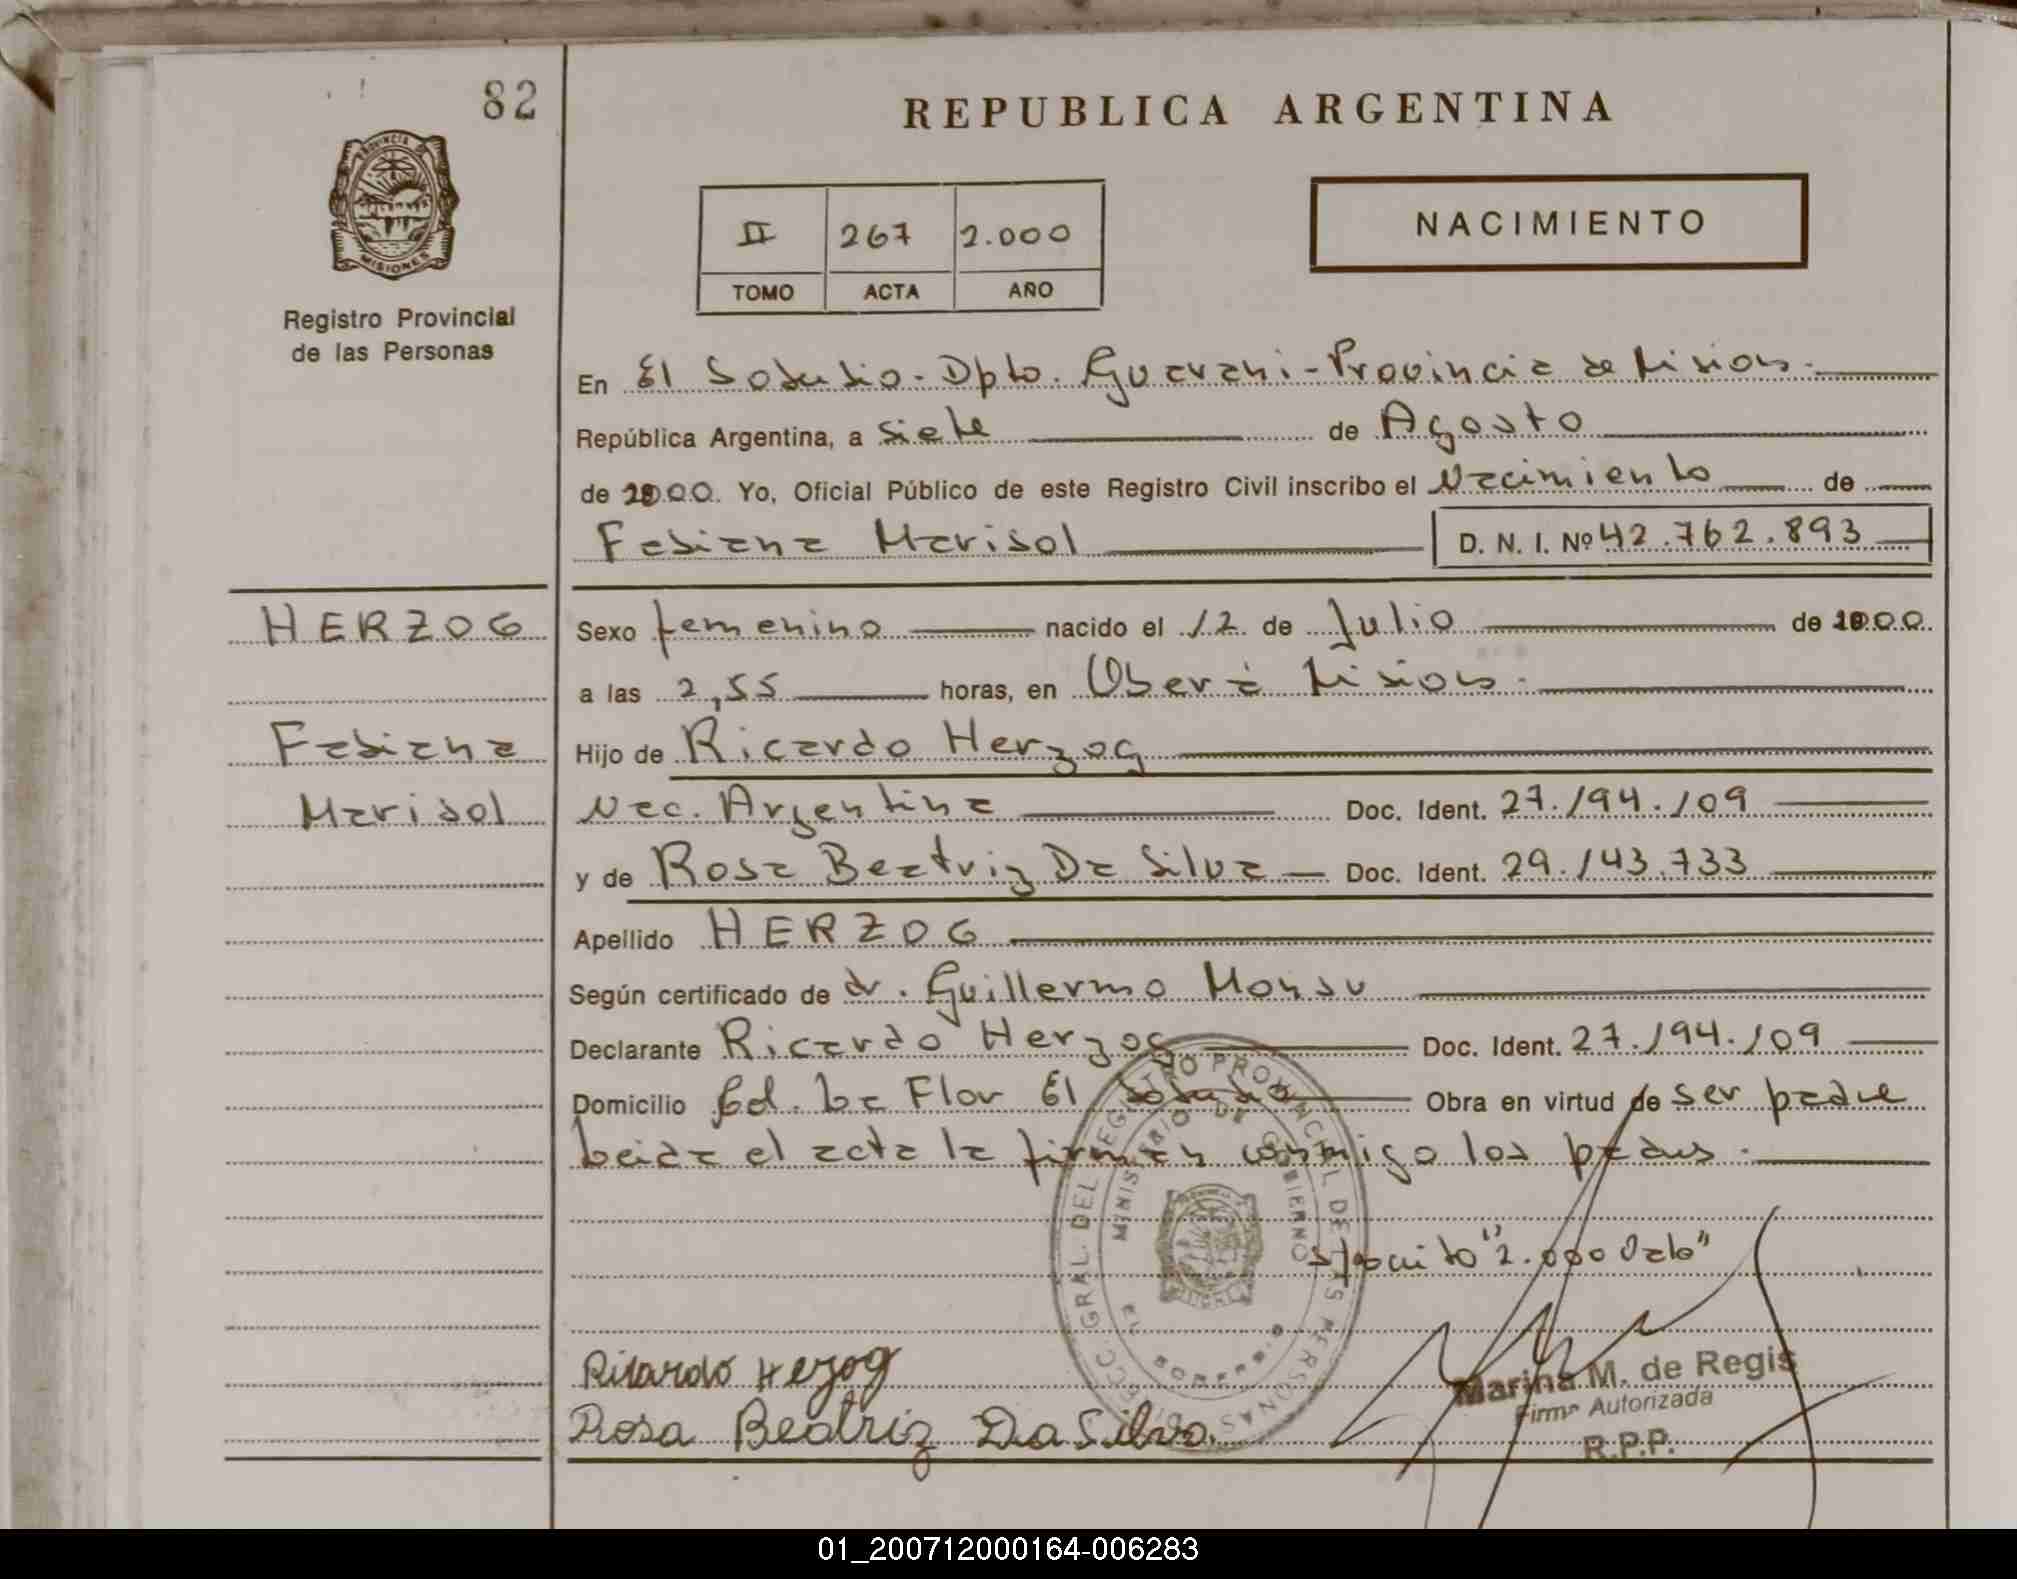 82
REPUBLICA ARGENTINA
PROVINCIA DE
MISIONES
Registro Provincial
de las Personas
NACIMIENTO
II 267 2.000
TOMO ACTA AÑO
En El Soberbio - Dpto. Guarani - Provincia de Misiones.
República Argentina, a siete de Agosto
de 2000. Yo, Oficial Público de este Registro Civil inscribo el Nacimiento de
Fabiana Marisol D. N. I. Nº 42.762.893
HERZOG
Fabiana
Marisol
Sexo femenino nacido el 12 de Julio de 2000.
a las 2,55 horas, en Oberá Misiones.
Hijo de Ricardo Herzog
Nac. Argentina Doc. Ident. 27.194.109
y de Rosa Beatriz Da Silva Doc. Ident. 29.143.733
Apellido HERZOG
Según certificado de dr. Guillermo
Declarante Ricardo Herzog Doc. Ident. 27.194.109
Domicilio Col. La Flor El Soberbio Obra en virtud de ser padre
Leida el acta la firman conmigo los padres.
"2.000 Vale"
DIRECC. GRAL. DEL REGISTRO PROVINCIAL DE LAS PERSONAS
MINISTERIO DE GOBIERNO
Ricardo Herzog
Rosa Beatriz Da Silva.
Marina M. de Regis
Firma Autorizada
R.P.P.
01_200712000164-006283